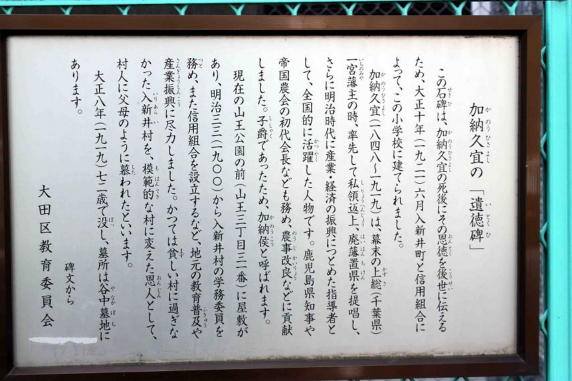 加納久宜の「遺徳碑」
この石碑は、加納久宜の死後にその恩徳を後世に伝える
ため、大正十年(一九二一)六月入新井町と信用組合に
よって、この小学校に建てられました。
加納久宜(一八四八~一九一九)は、幕末の上総(千葉県)
一宮藩主の時、率先して私領返上、廃藩置県を提唱し、
さらに明治時代に産業・経済の振興につとめた指導者と
して、全国的に活躍した人物です。鹿児島県知事や
帝国農会の初代会長なども務め、農事改良などに貢献
しました。子爵であったため、加納侯と呼ばれます。
現在の山王公園の前(山王三丁目三一番)に屋敷が
あり、明治三三(一九〇〇)から入新井村の学務委員を
務め、また信用組合を設立するなど、地元の教育普及や
産業振興に尽力しました。かつては貧しい村に過ぎな
かった入新井村を、模範的な村に変えた恩人として、
村人に父母のように慕われたといいます。
大正八年(一九一九)七二歳で没し、墓所は谷中墓地に
あります。
碑文から
大田区教育委員会